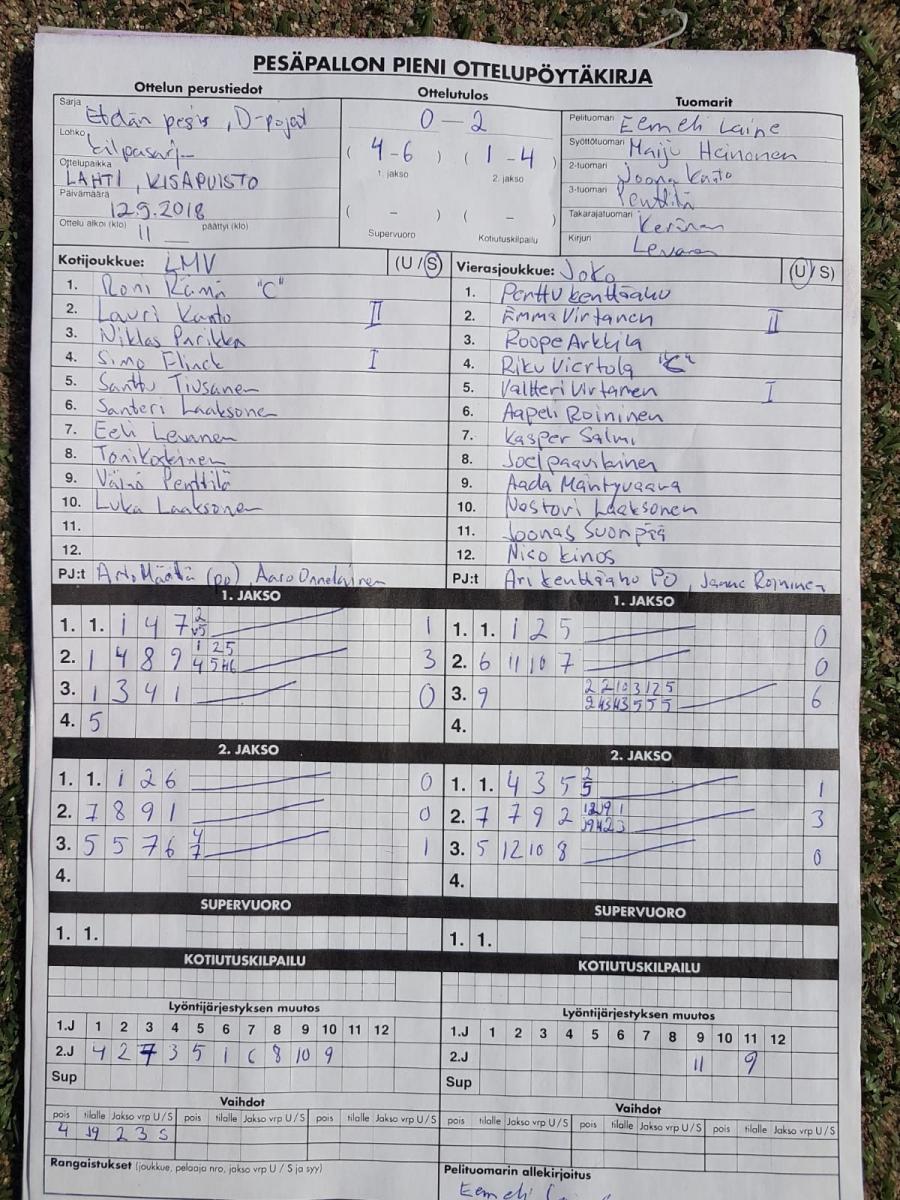 PESÄPALLON PIENI OTTELUPÖYTÄKIRJA
Ottelun perustiedot
Sarja Etelän pesis, D-pojat
Lohko kilpasarj
Ottelupaikka LAHTI, KISAPUISTO
Päivämäärä 12.9.2018
Ottelu alkoi (klo) 11 päättyi (klo)
Ottelutulos
0 - 2
(4-6) (1-4)
1. jakso 2. jakso
( - ) ( - )
Supervuoro Kotiutuskilpailu
Tuomarit
Pelituomari Eemeli Laine
Syöttötuomari Maiju Heinonen
2-tuomari Joona Kanto
3-tuomari Penttilä
Takarajatuomari Kerinen
Kirjuri Levanen
Kotijoukkue: LMV (U / S)
1. Roni Rämä "C"
2. Lauri Kanto II
3. Niklas Parikka
4. Simo Flinck I
5. Santtu Tiusanen
6. Santeri Laaksonen
7. Eeli Levanen
8. Toni Koskinen
9. Väinö Penttilä
10. Luka Laaksonen
11.
12.
PJ:t Arto Määttä (pp), Aaro Onnelainen
Vierasjoukkue: JoKo (U / S)
1. Perttu Kenttäaho
2. Emma Virtanen II
3. Roope Arkkila
4. Riku Viertola "C"
5. Valtteri Virtanen I
6. Aapeli Roininen
7. Kasper Salmi
8. Joel paavilainen
9. Aada Mäntyvaara
10. Nestori Laaksonen
11. Joonas Suonpää
12. Nico Kinos
PJ:t Ari Kenttäaho PO, Janne Roininen
1. JAKSO
1. 1. 1 4 7 2 5 1
2. 1 4 8 9 1 2 5 4 5 6 3
3. 1 3 4 1 0
4. 5
1. JAKSO
1. 1. 1 2 5 0
2. 6 11 10 7 0
3. 9 6
4.
2. JAKSO
1. 1. 1 2 6 0
2. 7 8 9 1 0
3. 5 5 7 6 4 7 1
4.
2. JAKSO
1. 1. 4 3 5 2 5 1
2. 7 7 9 2 3
3. 5 12 10 8 0
4.
SUPERVUORO
1. 1.
SUPERVUORO
1. 1.
KOTIUTUSKILPAILU
KOTIUTUSKILPAILU
Lyöntijärjestyksen muutos
1.J 1 2 3 4 5 6 7 8 9 10 11 12
2.J 4 2 7 3 5 1 6 8 10 9
Sup
Lyöntijärjestyksen muutos
1.J 1 2 3 4 5 6 7 8 9 10 11 12
2.J 11 9
Sup
Vaihdot
pois tilalle Jakso vrp U / S pois tilalle Jakso vrp U / S pois tilalle Jakso vrp U / S
4 J9 2 3 S
Vaihdot
pois tilalle Jakso vrp U / S pois tilalle Jakso vrp U / S pois tilalle Jakso vrp U / S
Rangaistukset (joukkue, pelaaja nro, jakso vrp U / S ja syy)
Pelituomarin allekirjoitus
Eemeli Laine